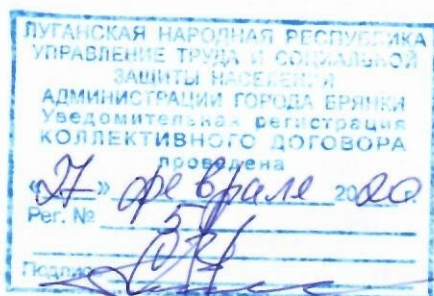 ЛУГАНСКАЯ НАРОДНАЯ РЕСПУБЛИКА
УПРАВЛЕНИЕ ТРУДА И СОЦИАЛЬНОЙ
ЗАЩИТЫ НАСЕЛЕНИЯ
АДМИНИСТРАЦИИ ГОРОДА БРЯНКИ
Уведомительная регистрация
КОЛЛЕКТИВНОГО ДОГОВОРА
проведена
«27» февраля 2020
Рег. №
Подпись